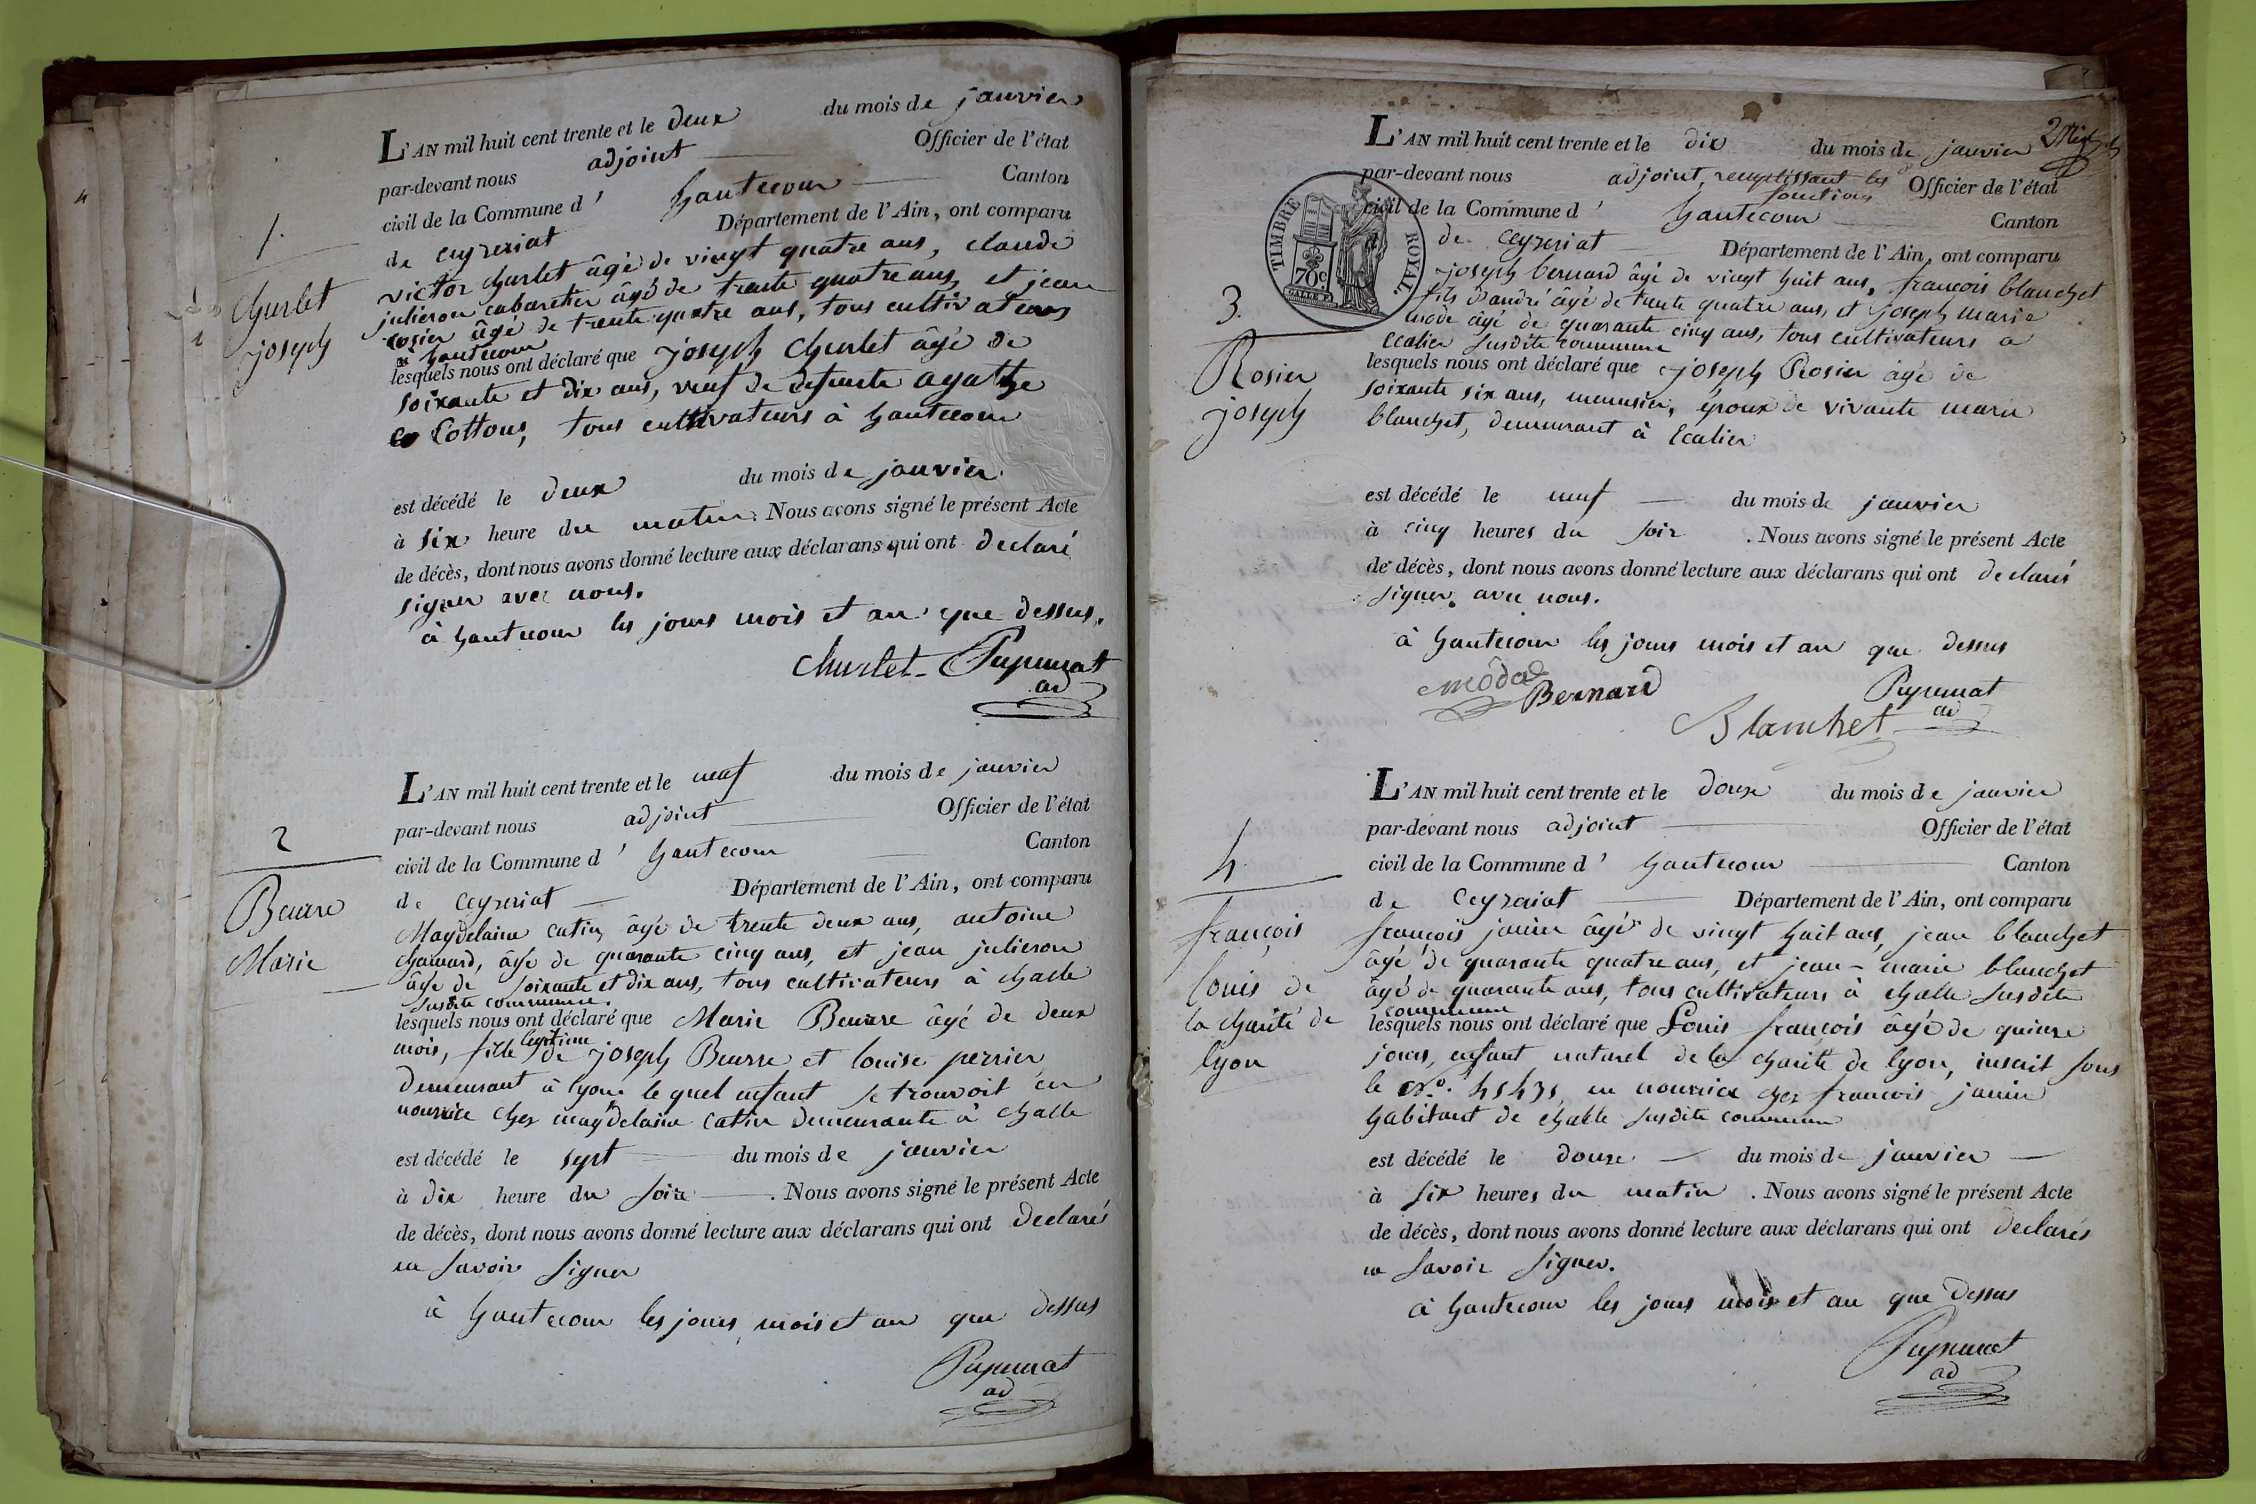 4
L'AN mil huit cent trente et le deux du mois de janvier
par-devant nous adjoint Officier de l'état
civil de la Commune d' hautecour Canton
de ceyzeriat Département de l'Ain, ont comparu
victor Churlet âgé de vingt quatre ans, claude
julieron cabaretier âgé de trente quatre ans, et jean
rosier âgé de trente quatre ans, tous cultivateurs
à hautecour
lesquels nous ont déclaré que joseph Churlet âgé de
soixante et dix ans, veuf de defunte agathe
Cottons, tous cultivateurs à hautecour
est décédé le deux du mois de janvier
à six heure du matin. Nous avons signé le présent Acte
de décès, dont nous avons donné lecture aux déclarans qui ont declaré
signer avec nous.
à hautecour les jours mois et an que dessus.
churlet Pupunat
ad
1.
Churlet
joseph
L'AN mil huit cent trente et le neuf du mois de janvier
par-devant nous adjoint Officier de l'état
civil de la Commune d' hautecour Canton
de ceyzeriat Département de l'Ain, ont comparu
Magdelaine catin, âgé de trente deux ans, antoine
chanard, âgé de quarante cinq ans, et jean julieron
âgé de soixante et dix ans, tous cultivateurs à challe
susdite commune.
lesquels nous ont déclaré que Marie Beurre âgé de deux
mois, fille legitime de joseph Beurre et louise perrier
demeurant à lyon le quel enfant se trouvoit en
nourrice chez magdelaine catin demeurante à challe
est décédé le sept du mois de janvier
à dix heure du soir. Nous avons signé le présent Acte
de décès, dont nous avons donné lecture aux déclarans qui ont declarés
ne savoir signer
à hautecour les jours, mois et an que dessus
Pupunat
ad
2
Beurre
Marie
2
L'AN mil huit cent trente et le dix du mois de janvier
par-devant nous adjoint, remplissant les fonctions Officier de l'état
civil de la Commune d' hautecour Canton
de ceyzeriat Département de l'Ain, ont comparu
joseph bernard âgé de vingt huit ans, françois blanchet
fils d'andré âgé de trente quatre ans, et joseph marie
mode âgé de quarante cinq ans, tous cultivateurs a
Ecalier susdite commune
lesquels nous ont déclaré que joseph Rosier âgé de
soixante six ans, menusier, époux de vivante marie
blanchet, demeurant à Ecalier
est décédé le neuf du mois de janvier
à cinq heures du soir. Nous avons signé le présent Acte
de décès, dont nous avons donné lecture aux déclarans qui ont declarés
signer avec nous.
à hautecour les jours mois et an que dessus
môde Bernard Pupunat
ad
Blanchet
TIMBRE ROYAL
70c
3.
Rosier
joseph
L'AN mil huit cent trente et le douze du mois de janvier
par-devant nous adjoint Officier de l'état
civil de la Commune d' hautecour Canton
de Ceyzeriat Département de l'Ain, ont comparu
françois janin âgé de vingt huit ans, jean blanchet
âgé de quarante quatre ans, et jean-marie blanchet
âgé de quarante ans, tous cultivateurs à challe susdite
commune
lesquels nous ont déclaré que Louis françois âgé de quinze
jours, enfant naturel de la charité de lyon, inscrit sous
le No. 45431, en nourrice chez francois janin
habitant de challe susdite commune
est décédé le douze du mois de janvier
à six heures du matin. Nous avons signé le présent Acte
de décès, dont nous avons donné lecture aux déclarans qui ont declarés
ne savoir signer.
à hautecour les jours mois et an que dessus
Pupunat
ad
4.
françois
louis de
la charité de
lyon